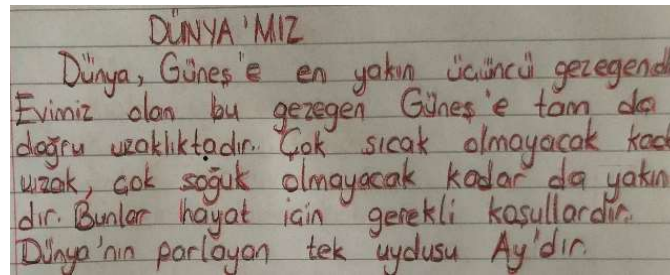 DÜNYA'MIZ
Dünya, Güneş'e en yakın üçüncü gezegend
Evimiz olan bu gezegen Güneş'e tam da
doğru uzaklıktadır. Çok sıcak olmayacak kad
uzak, çok soğuk olmayacak kadar da yakın
dır. Bunlar hayat için gerekli koşullardır.
Dünya'nın parlayan tek uydusu Ay'dır.